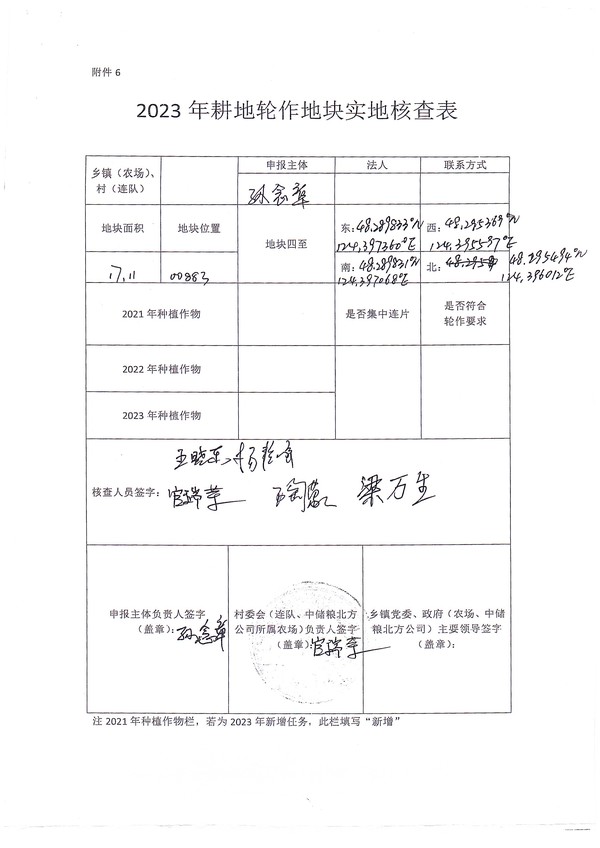 附件 6
2023 年耕地轮作地块实地核查表
乡镇（农场）、
村（连队）
申报主体
法人
联系方式
孙念章
地块面积
地块位置
地块四至
东: 48.289833°N
124.397360°E
西: 48.295369°N
124.395597°E
17.11
00883
南: 48.289831°N
124.397068°E
北: 48.295494°N
124.396012°E
2021 年种植作物
是否集中连片
是否符合
轮作要求
2022 年种植作物
2023 年种植作物
王晓东
核查人员签字:
官瑞苹
梁万生
申报主体负责人签字
（盖章）:
孙念章
村委会（连队、中储粮北方
公司所属农场）负责人签字
（盖章）:
官瑞苹
乡镇党委、政府（农场、中储
粮北方公司）主要领导签字
（盖章）:
注 2021 年种植作物栏，若为 2023 年新增任务，此栏填写“新增”